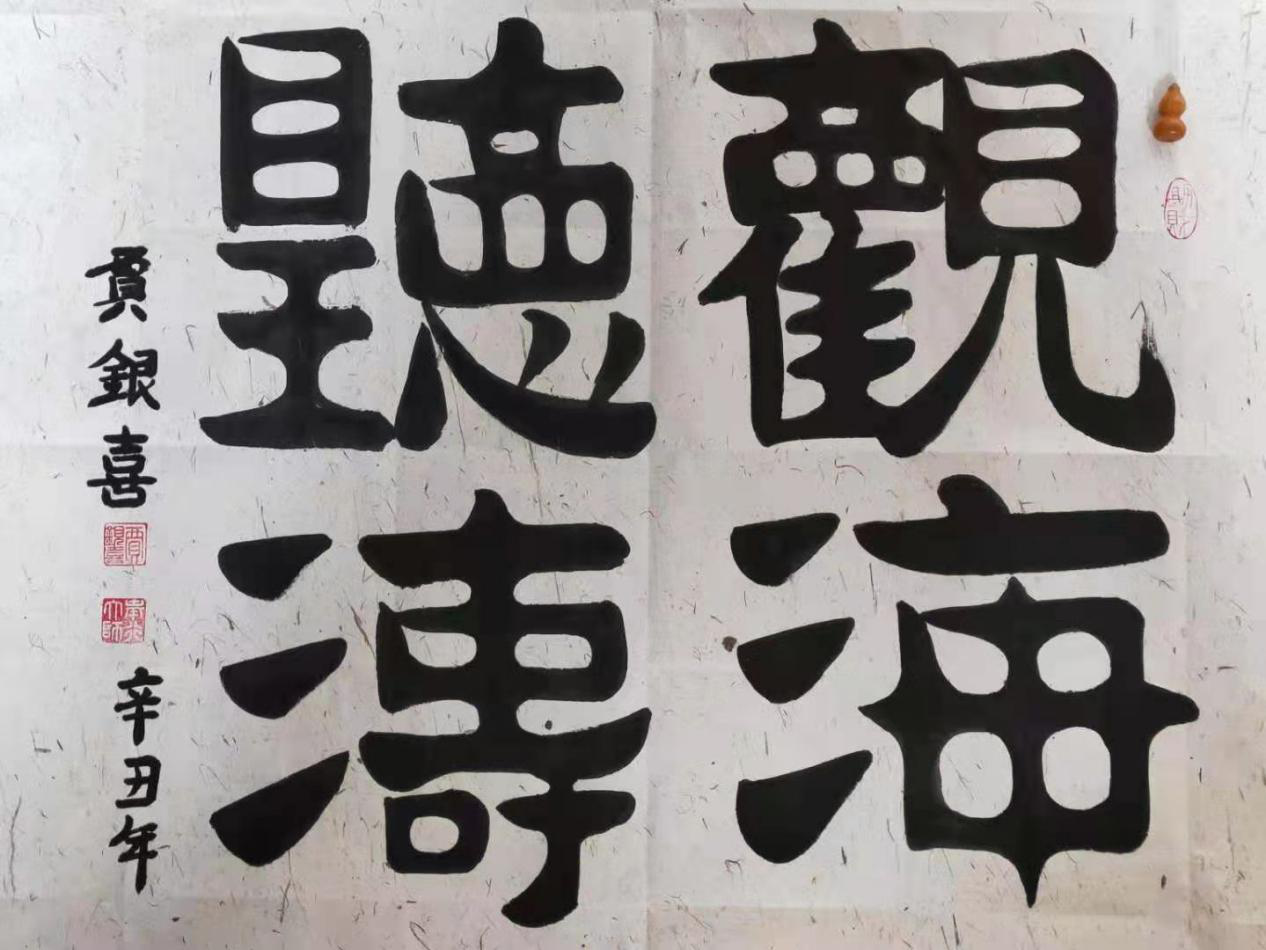 觀海
聽濤
賈銀喜
辛丑年